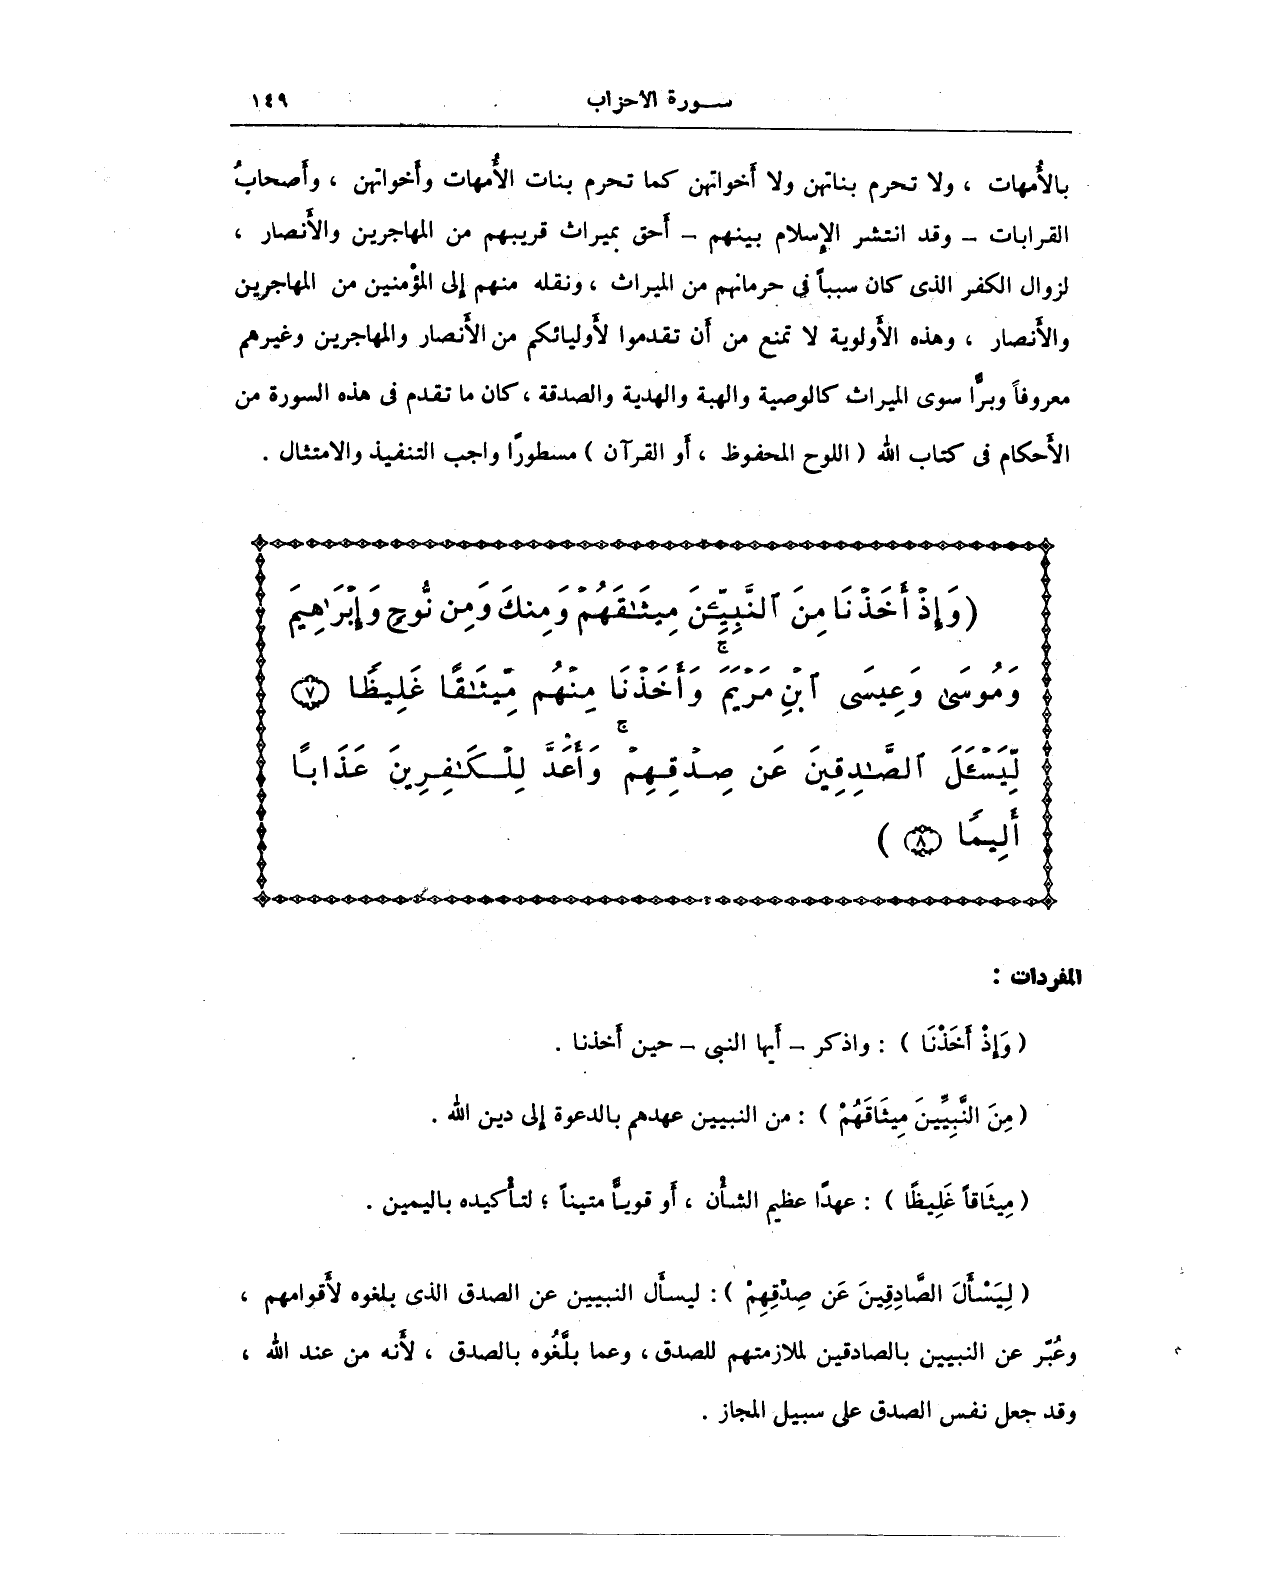 سورة الاحزاب ١٤٩
بالأُمهات ، ولا تحرم بناتهن ولا أخواتهن كما تحرم بنات الأُمهات وأخواتهن ، وأصحابُ
القرابات – وقد انتشر الإسلام بينهم – أحق بميراث قريبهم من المهاجرين والأنصار ،
لزوال الكفر الذى كان سبباً فى حرمانهم من الميراث ، ونقله منهم إلى المؤمنين من المهاجرين
والأنصار ، وهذه الأولوية لا تمنع من أن تقدموا لأوليائكم من الأنصار والمهاجرين وغيرهم
معروفاً وبرًّا سوى الميراث كالوصية والهبة والهدية والصدقة ، كان ما تقدم فى هذه السورة من
الأحكام فى كتاب الله ( اللوح المحفوظ ، أو القرآن ) مسطورًا واجب التنفيذ والامتثال .
(وَإِذْ أَخَذْنَا مِنَ ٱلنَّبِيِّـۧنَ مِيثَـٰقَهُمْ وَمِنكَ وَمِن نُّوحٍ وَإِبْرَٰهِيمَ
وَمُوسَىٰ وَعِيسَى ٱبْنِ مَرْيَمَ ۖ وَأَخَذْنَا مِنْهُم مِّيثَـٰقًا غَلِيظًا ﴿٧﴾
لِّيَسْـَٔلَ ٱلصَّـٰدِقِينَ عَن صِدْقِهِمْ ۚ وَأَعَدَّ لِلْكَـٰفِرِينَ عَذَابًا
أَلِيمًا ﴿٨﴾ )
المفردات :
( وَإِذْ أَخَذْنَا ) : واذكر – أيها النبى – حين أخذنا .
( مِنَ النَّبِيِّينَ مِيثَاقَهُمْ ) : من النبيين عهدهم بالدعوة إلى دين الله .
( مِيثَاقاً غَلِيظًا ) : عهدًا عظيم الشأن ، أو قويًّا متيناً ؛ لتأكيده باليمين .
( لِيَسْأَلَ الصَّادِقِينَ عَن صِدْقِهِمْ ) : ليسأل النبيين عن الصدق الذى بلغوه لأقوامهم ،
وعُبّر عن النبيين بالصادقين لملازمتهم للصدق ، وعما بلَّغُوه بالصدق ، لأنه من عند الله ،
وقد جعل نفس الصدق على سبيل المجاز .